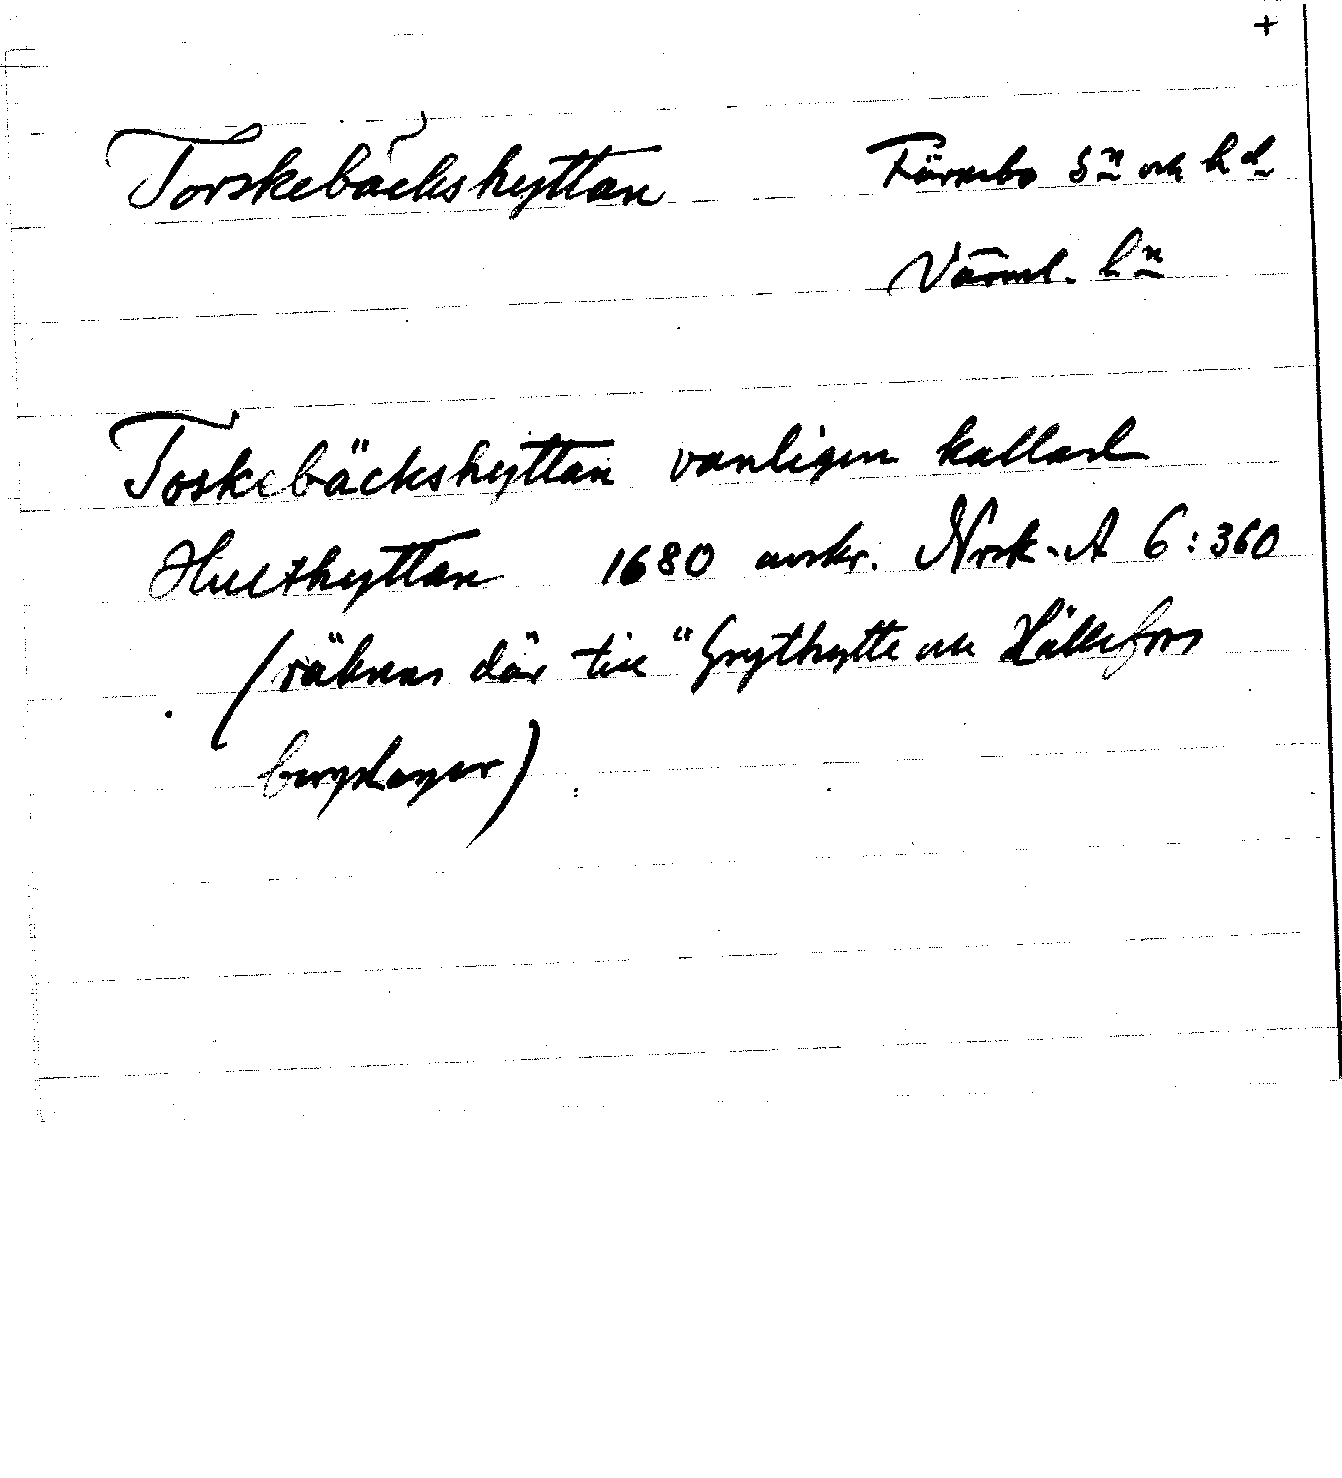 +
Torskebäckshyttan Färnebo sn och hd
Värml. ln
Toskebäckshyttan vanligen kallad
Hulthyttan 1680 avskr. Nrsk. A 6:360
(räknas där till "Grythytte och Hällefors
bergslager)